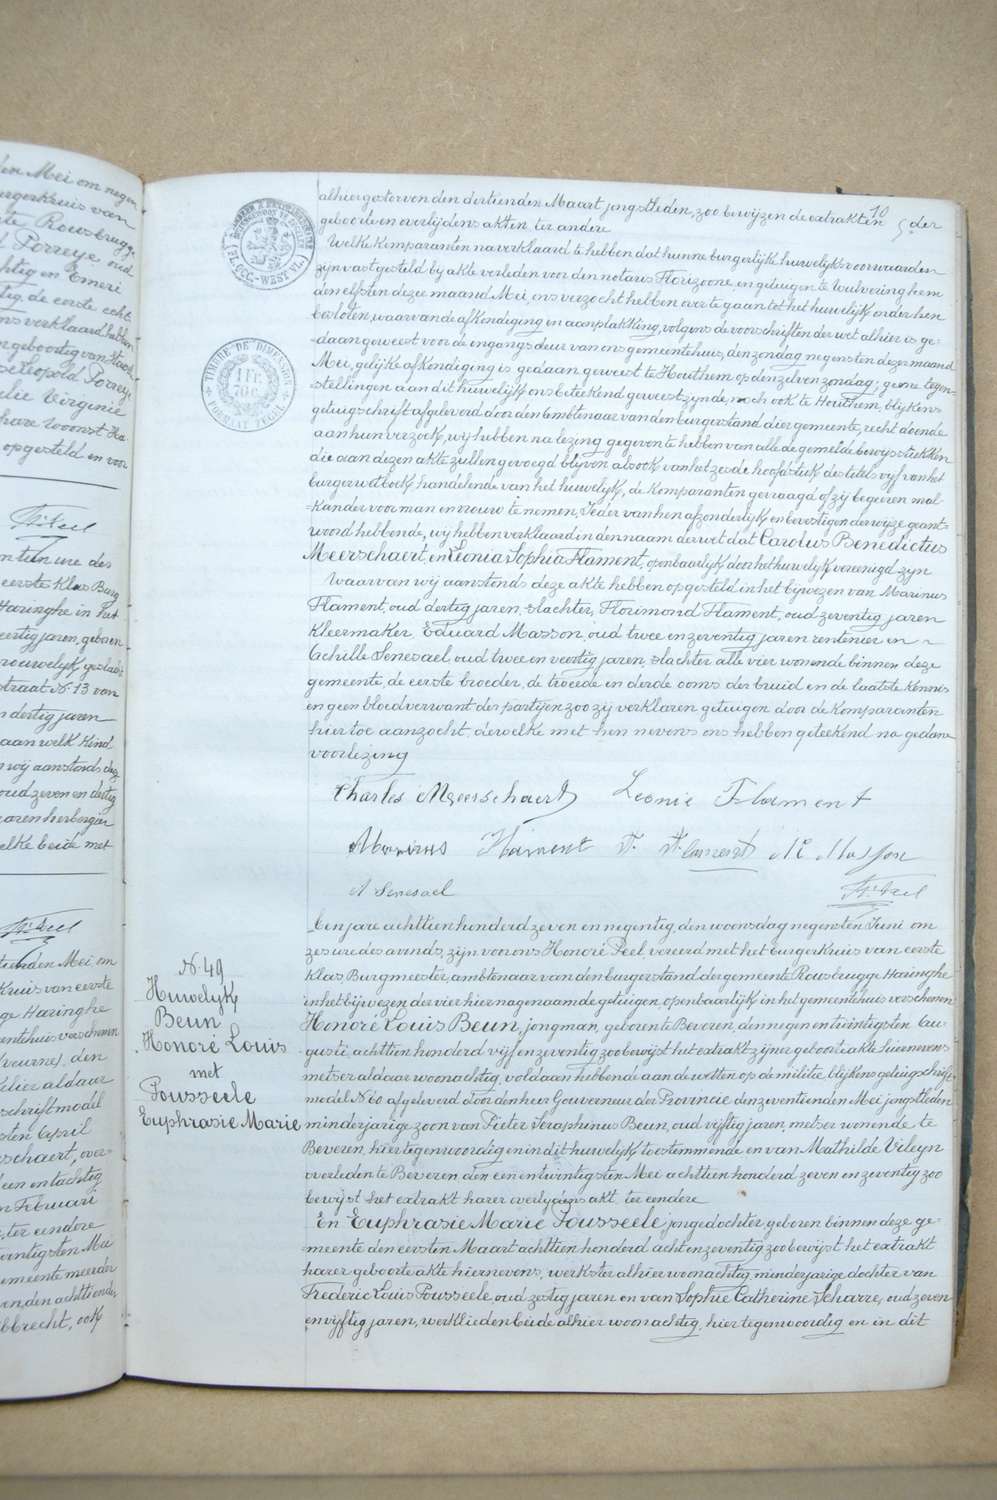 den Mei om negen
burgerkruis van
Rousbrugge
Porreye oud
achtig en Emeri
de eerste echt
verklaard hebben
geboortig van Staden
Leopold Porreye
Virginie
hare woonst Ha
opgesteld en voor
ten tien ure des
eerste Klas Burg
Haringhe in het
veertig jaren, geboren
vrouwelyk geslacht
straat N. 13 van
dertig jaren
aan welk kind
wij aanstonds deze
oud zeven en dertig
jaren herbergier
welke beide met
tienden Mei om
Kruis van eerste
Haringhe
gemeentehuis verschenen
(veurne), den
aldaar
schrift model
sten April
Meerschaert, over-
een en tachtig
Februari
ter eendere
twintigsten Mei
gemeente meerder
den achttienden
bbrecht, ook
10
5 der
ZEGEL
OCC.-WEST VL.
TIMBRE DE DIMENSION
1 FR.
FORMAT TEGIL
alhier gestorven den dertienden Maart jongstleden, zoo bewijzen de extrakten
geboorte en overlijdens akten, ter andere
Welke komparanten na verklaard te hebben dat hunne burgerlijke huwelijksvoorwaarden
zijn vastgesteld bij akte verleden voor den notaris Florizoone, en getuigen te Wulveringhem
den elfsten dezer maand Mei, ons verzocht hebben over te gaan tot het huwelijk onder hen
besloten, waarvan de afkondiging en aanplakking, volgens de voorschriften der wet alhier is ge-
-daan geweest voor de ingangsdeur van ons gemeentehuis, den zondag negensten dezer maand
Mei, gelijke afkondiging is gedaan geweest te Houthem op denzelven zondag; geene tegen-
-stellingen aan dit huwelijk ons beteekend geweest zynde, noch ook te Houthem, blijkens
getuigschrift afgeleverd door den Ambtenaar van den burgerstand dier gemeente, recht doende
aan hun verzoek, wij hebben na lezing gegeven te hebben van alle de gemelde bewysstukken
die aan dezen akte zullen gevoegd blijven alsook van het zesde hoofdstuk des titel vijf van het
burgerwetboek, handelende van het huwelijk, de komparanten gevraagd of zij begeren mal-
=kander voor man en vrouw te nemen, Ieder van hen afzonderlijk en bevestigender wijze geant-
woord hebbende, wij hebben verklaard in den naam der wet dat Carolus Benedictus
Meerschaert, en Leonia Sophia Flament, openbaarlijk door het huwelijk vereenigd zijn
Waarvan wij aanstonds deze akte hebben opgesteld in het bijwezen van Marinus
Flament, oud dertig jaren, slachter, Florimond Flament, oud zeventig jaren
kleermaker, Eduard Masson, oud twee en zeventig jaren rentenier en ~
Achille Senesael oud twee en veertig jaren, slachter alle vier wonende binnen deze
gemeente, de eerste broeder, de tweede en derde ooms der bruid en de laatste kennis
en geen bloedverwant der partijen zoo zij verklaren getuigen door de komparanten
hiertoe aanzocht, dewelke met hen nevens ons hebben geteekend na gedane
voorlezing
Charles Meerschaert Leonie Flament
Marinus Flament F. Flament Ed Masson
A Senesael
N. 49
Huwelyk
Beun
Honoré Louis
met
Pousseele
Euphrasie Marie
Ten jare achttien honderd zeven en negentig, den woensdag negensten Juni om
zes ure des avonds, zijn voor ons Honoré Peel, vereerd met het burgerkruis van eerste
Klas, Burgmeester, ambtenaar van den burgerstand der gemeente Rousbrugge Haringhe
in het bijwezen der vier hiernagenaamde getuigen, openbaarlijk in het gemeentehuis verschenen
Honoré Louis Beun, jongman, geboren te Beveren, den negen en twintigsten Au-
-gusti, achttien honderd vijf en zeventig zoo bewijst het extrakt zijner geboorteakte hiernevens
metser aldaar woonachtig, voldaan hebbende aan de wetten op de militie, blijkens getuigschrift
model N. 60 afgeleverd door den heer Gouverneur der Provincie den zeventienden Mei jongstleden
minderjarige zoon van Pieter Seraphinus Beun, oud vijftig jaren, metser wonende te
Beveren, hier tegenwoordig en in dit huwelijk toestemmende en van Mathilde Vileyn
overleden te Beveren den een en twintigsten Mei achttien honderd zeven en zeventig zoo
bewijst het extrakt harer overlydens akt, ter eendere
En Euphrasie Marie Pousseele jongedochter, geboren binnen deze ge-
-meente den eersten Maart achttien honderd acht en zeventig zoo bewijst het extrakt
harer geboorteakte hiernevens, werkster alhier woonachtig, minderjarige dochter van
Frederic Louis Pousseele, oud zestig jaren en van Sophie Catherine Scharre, oud zeven
en vijftig jaren, werklieden beide alhier woonachtig, hier tegenwoordig en in dit